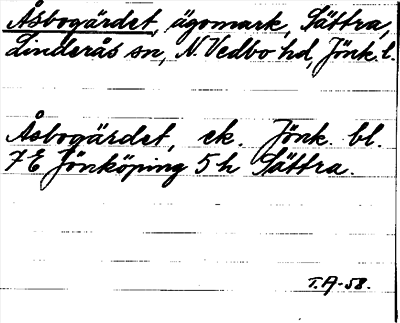 Åsbogärdet, ägomark, Sättra,
Linderås sn, N. Vedbo hd, Jönk. l.
Åsbogärdet, ek. Jönk. bl.
7E Jönköping 5h Sättra.
T.A-58.